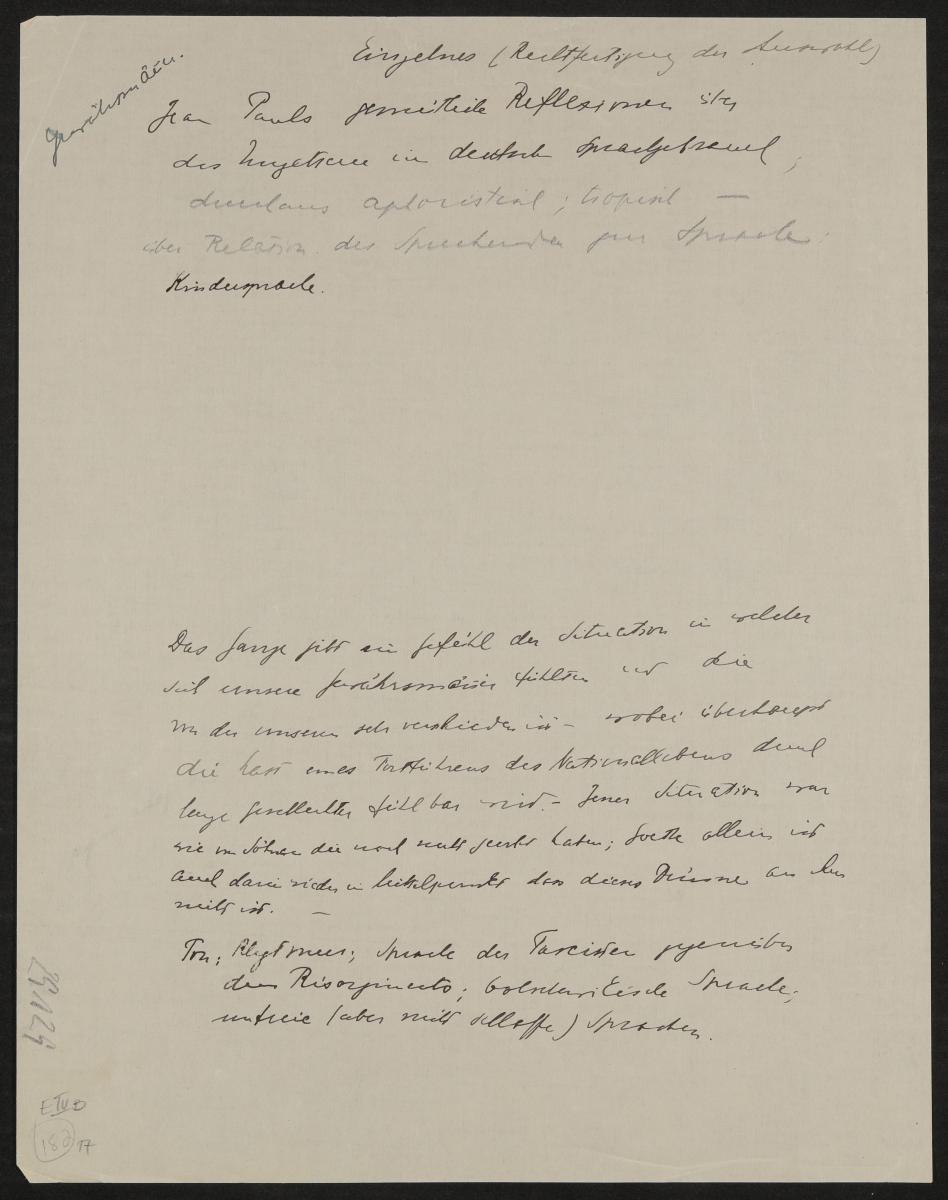 Einzelnes (Rechtfertigung der Auswahl)
Gewährsmänn.
Jean Pauls gemütliche Reflexionen über
das Ungeheure im deutschen Sprachgebrauch,
durchaus aphoristisch; tropisch —
über Relation des Sprechenden zur Sprache:
Kindersprache.
Das Ganze gibt ein Gefühl der Situation in welcher
sich unsere Gewährsmänner fühlten und die
von der unseren sehr verschieden ist – wobei überhaupt
die Last eines Fortführens des Nationallebens durch
lange Geschlechter fühlbar wird. – Jener Situation war
wie von Söhnen die noch nicht geerbt haben; Goethe allein ist
auch darin wieder im Mittelpunkt dass dieses Dünne an ihm
nicht ist. —
Ton; Sprache der Fascisten gegenüber
dem Risorgimento; bolschewikische Sprache;
unfreie (aber nicht schlaffe) Sprachen.
29124
E IV B
182 17